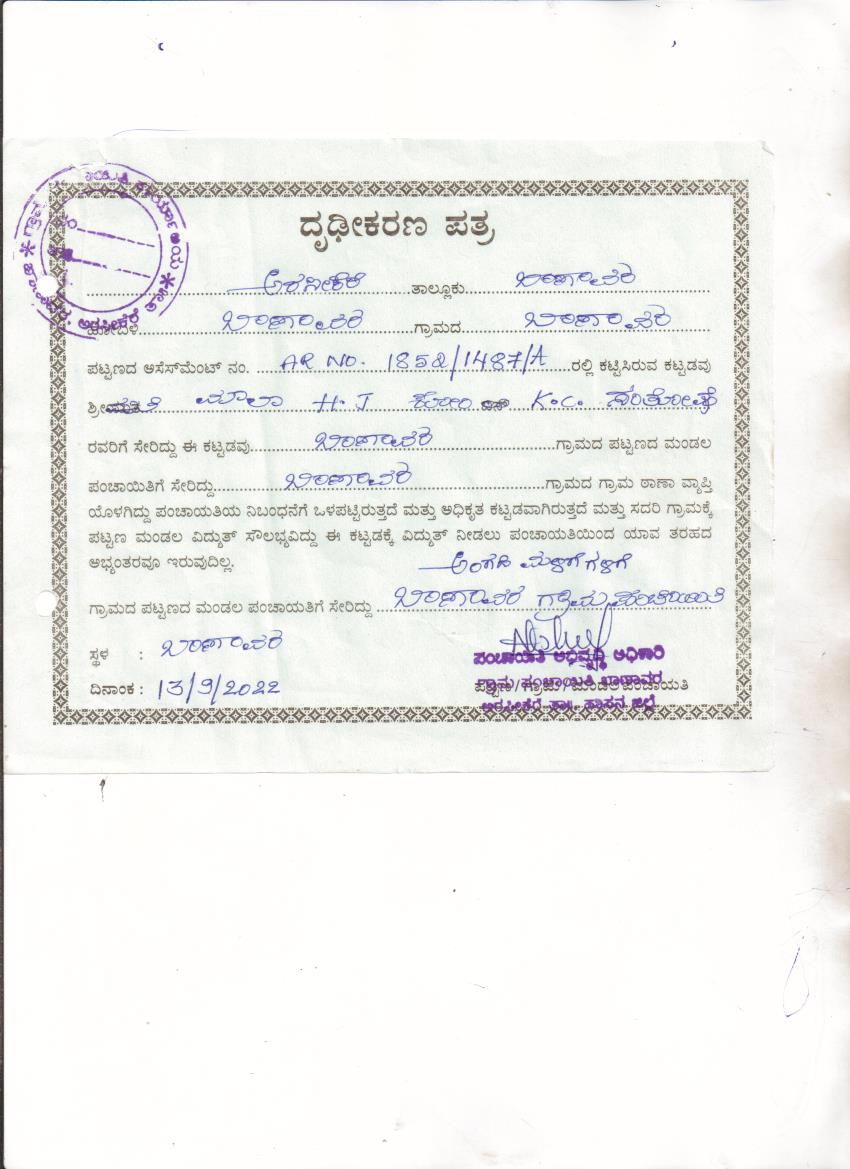 ದೃಢೀಕರಣ ಪತ್ರ
ಅರಸೀಕೆರೆ ತಾಲ್ಲೂಕು ಬಾಣಾವರ
ಹೋಬಳಿ ಬಾಣಾವರ ಗ್ರಾಮದ ಬಾಣಾವರ
ಪಟ್ಟಣದ ಅಸೆಸ್‌ಮೆಂಟ್ ನಂ. AR NO. 1852/1487/A ರಲ್ಲಿ ಕಟ್ಟಿಸಿರುವ ಕಟ್ಟಡವು
ಶ್ರೀಮತಿ ಮಾಲಾ H.J ಕೋಂ K.C. ಸಂತೋಷ್
ರವರಿಗೆ ಸೇರಿದ್ದು ಈ ಕಟ್ಟಡವು ಬಾಣಾವರ ಗ್ರಾಮದ ಪಟ್ಟಣದ ಮಂಡಲ
ಪಂಚಾಯಿತಿಗೆ ಸೇರಿದ್ದು ಬಾಣಾವರ ಗ್ರಾಮದ ಗ್ರಾಮ ಠಾಣಾ ವ್ಯಾಪ್ತಿ
ಯೊಳಗಿದ್ದು ಪಂಚಾಯತಿಯ ನಿಬಂಧನೆಗೆ ಒಳಪಟ್ಟಿರುತ್ತದೆ ಮತ್ತು ಅಧಿಕೃತ ಕಟ್ಟಡವಾಗಿರುತ್ತದೆ ಮತ್ತು ಸದರಿ ಗ್ರಾಮಕ್ಕೆ
ಪಟ್ಟಣ ಮಂಡಲ ವಿದ್ಯುತ್ ಸೌಲಭ್ಯವಿದ್ದು ಈ ಕಟ್ಟಡಕ್ಕೆ ವಿದ್ಯುತ್ ನೀಡಲು ಪಂಚಾಯತಿಯಿಂದ ಯಾವ ತರಹದ
ಅಭ್ಯಂತರವೂ ಇರುವುದಿಲ್ಲ. ಅಂಗಡಿ ಮಳಿಗೆಗಳಿಗೆ
ಗ್ರಾಮದ ಪಟ್ಟಣದ ಮಂಡಲ ಪಂಚಾಯತಿಗೆ ಸೇರಿದ್ದು ಬಾಣಾವರ ಗ್ರಾಮ ಪಂಚಾಯಿತಿ
ಸ್ಥಳ : ಬಾಣಾವರ
ಪಂಚಾಯತಿ ಅಭಿವೃದ್ಧಿ ಅಧಿಕಾರಿ
ದಿನಾಂಕ : 13/9/2022
ಪಟ್ಟಣ/ಗ್ರಾಮ/ಮಂಡಲ ಪಂಚಾಯತಿ
ಗ್ರಾಮ ಪಂಚಾಯಿತಿ ಬಾಣಾವರ
ಅರಸೀಕೆರೆ ತಾ|| ಹಾಸನ ಜಿಲ್ಲೆ